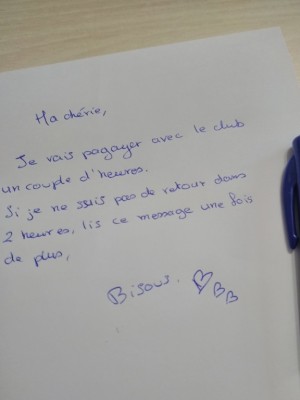 Ma chérie,
Je vais pagayer avec le club
un couple d'heures.
Si je ne suis pas de retour dans
2 heures, lis ce message une fois
de plus,
Bisous.